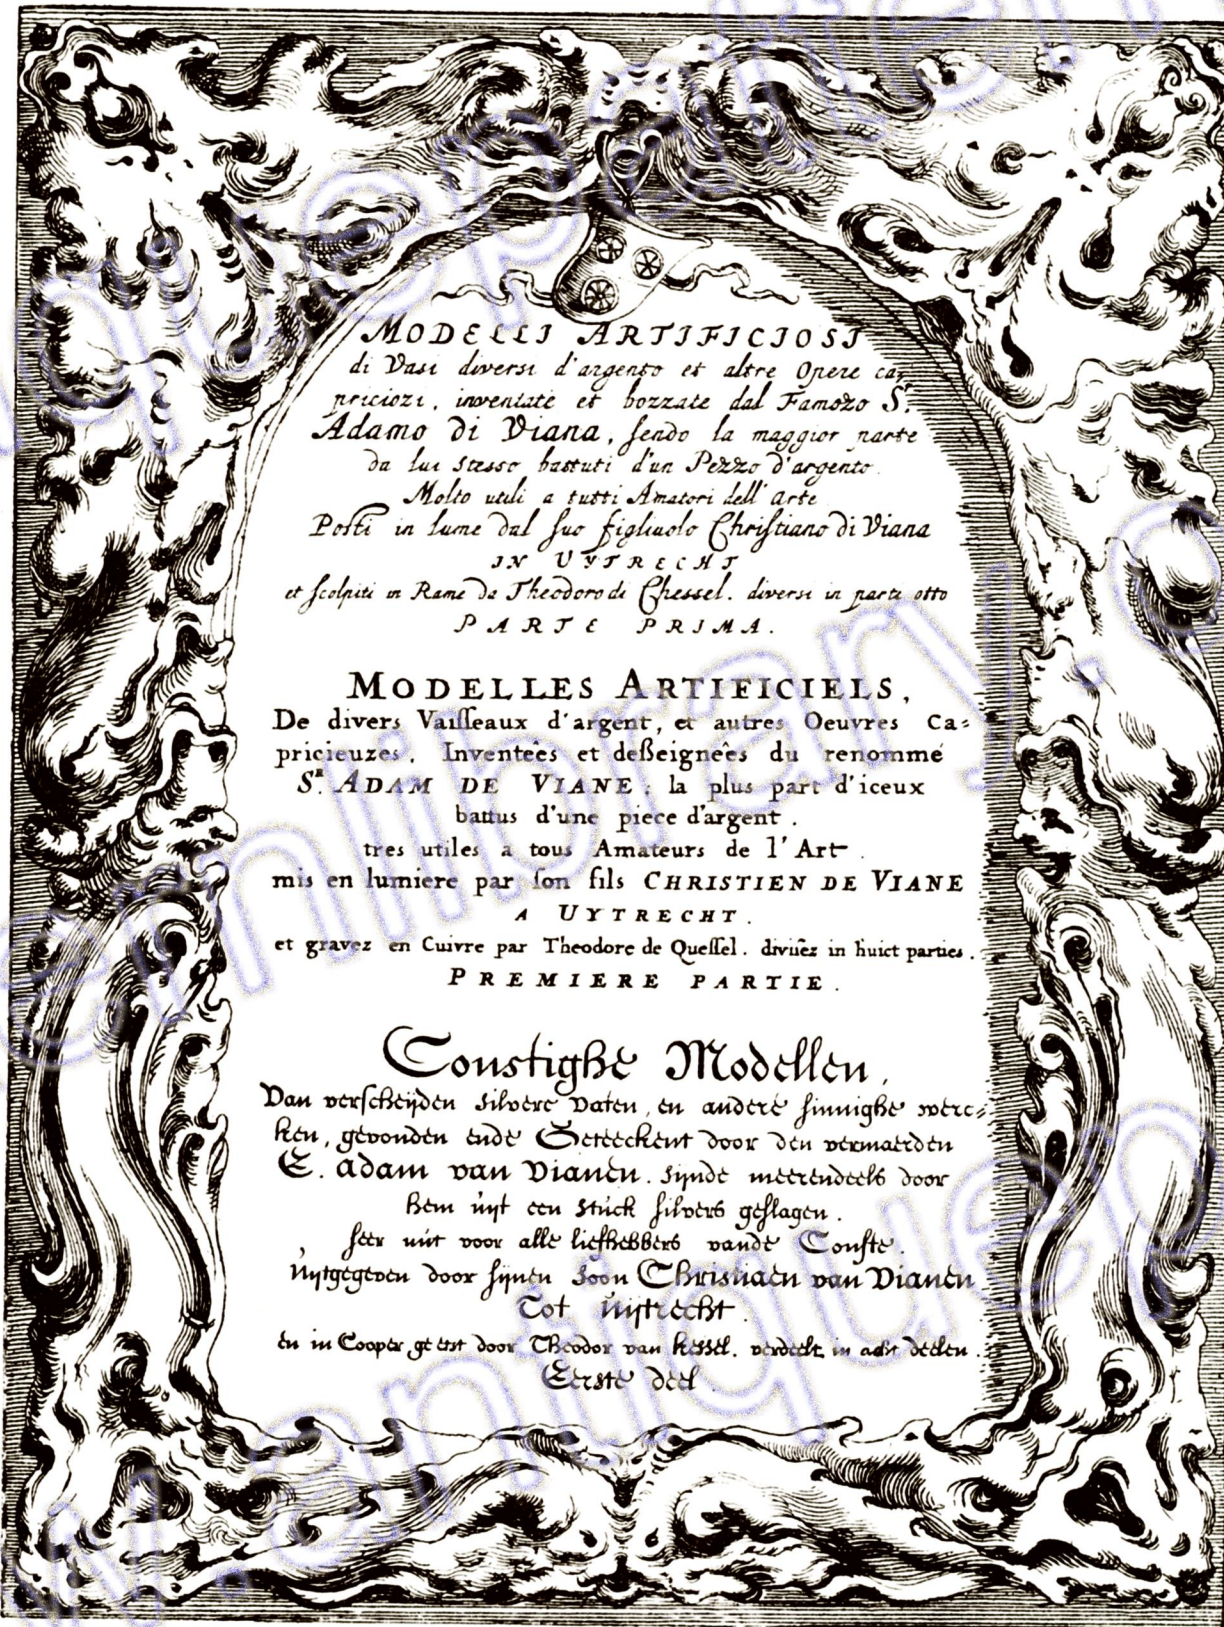 MODELLI ARTIFICIOSI
di Vasi diversi d'argento et altre Opere ca-
priciozi, inventate et bozzate dal Famozo Sr.
Adamo di Viana, sendo la maggior parte
da lui stesso battuti d'un Pezzo d'argento.
Molto utili a tutti Amatori dell' arte
Posti in lume dal suo figliuolo Christiano di Viana
IN UYTRECHT
et scolpiti in Rame da Theodoro di Chessel. diversi in parti otto
PARTE PRIMA.
MODELLES ARTIFICIELS,
De divers Vaisseaux d'argent, et autres Oeuvres Ca-
pricieuzes, Inventeês et deßeigneês du renommé
Sr. ADAM DE VIANE: la plus part d'iceux
battus d'une piece d'argent.
tres utiles a tous Amateurs de l'Art.
mis en lumiere par son fils CHRISTIEN DE VIANE
A UYTRECHT.
et gravez en Cuivre par Theodore de Quessel. divisez in huict parties.
PREMIERE PARTIE.
Constighe Modellen,
Van verscheijden silvere Vaten, en andere sinnighe werc-
ken, gevonden ende Geteeckent door den vermaerden
E. Adam van Vianen. sijnde meerendeels door
hem uijt een stuck silvers geslagen.
seer nut voor alle liefhebbers vande Conste.
Uijtgegeven door sijnen Soon Christiaen van Vianen
Tot Uijtrecht.
en in Cooper ge etst door Theodor van Kessel. verdeelt in acht deelen.
Eerste deel.